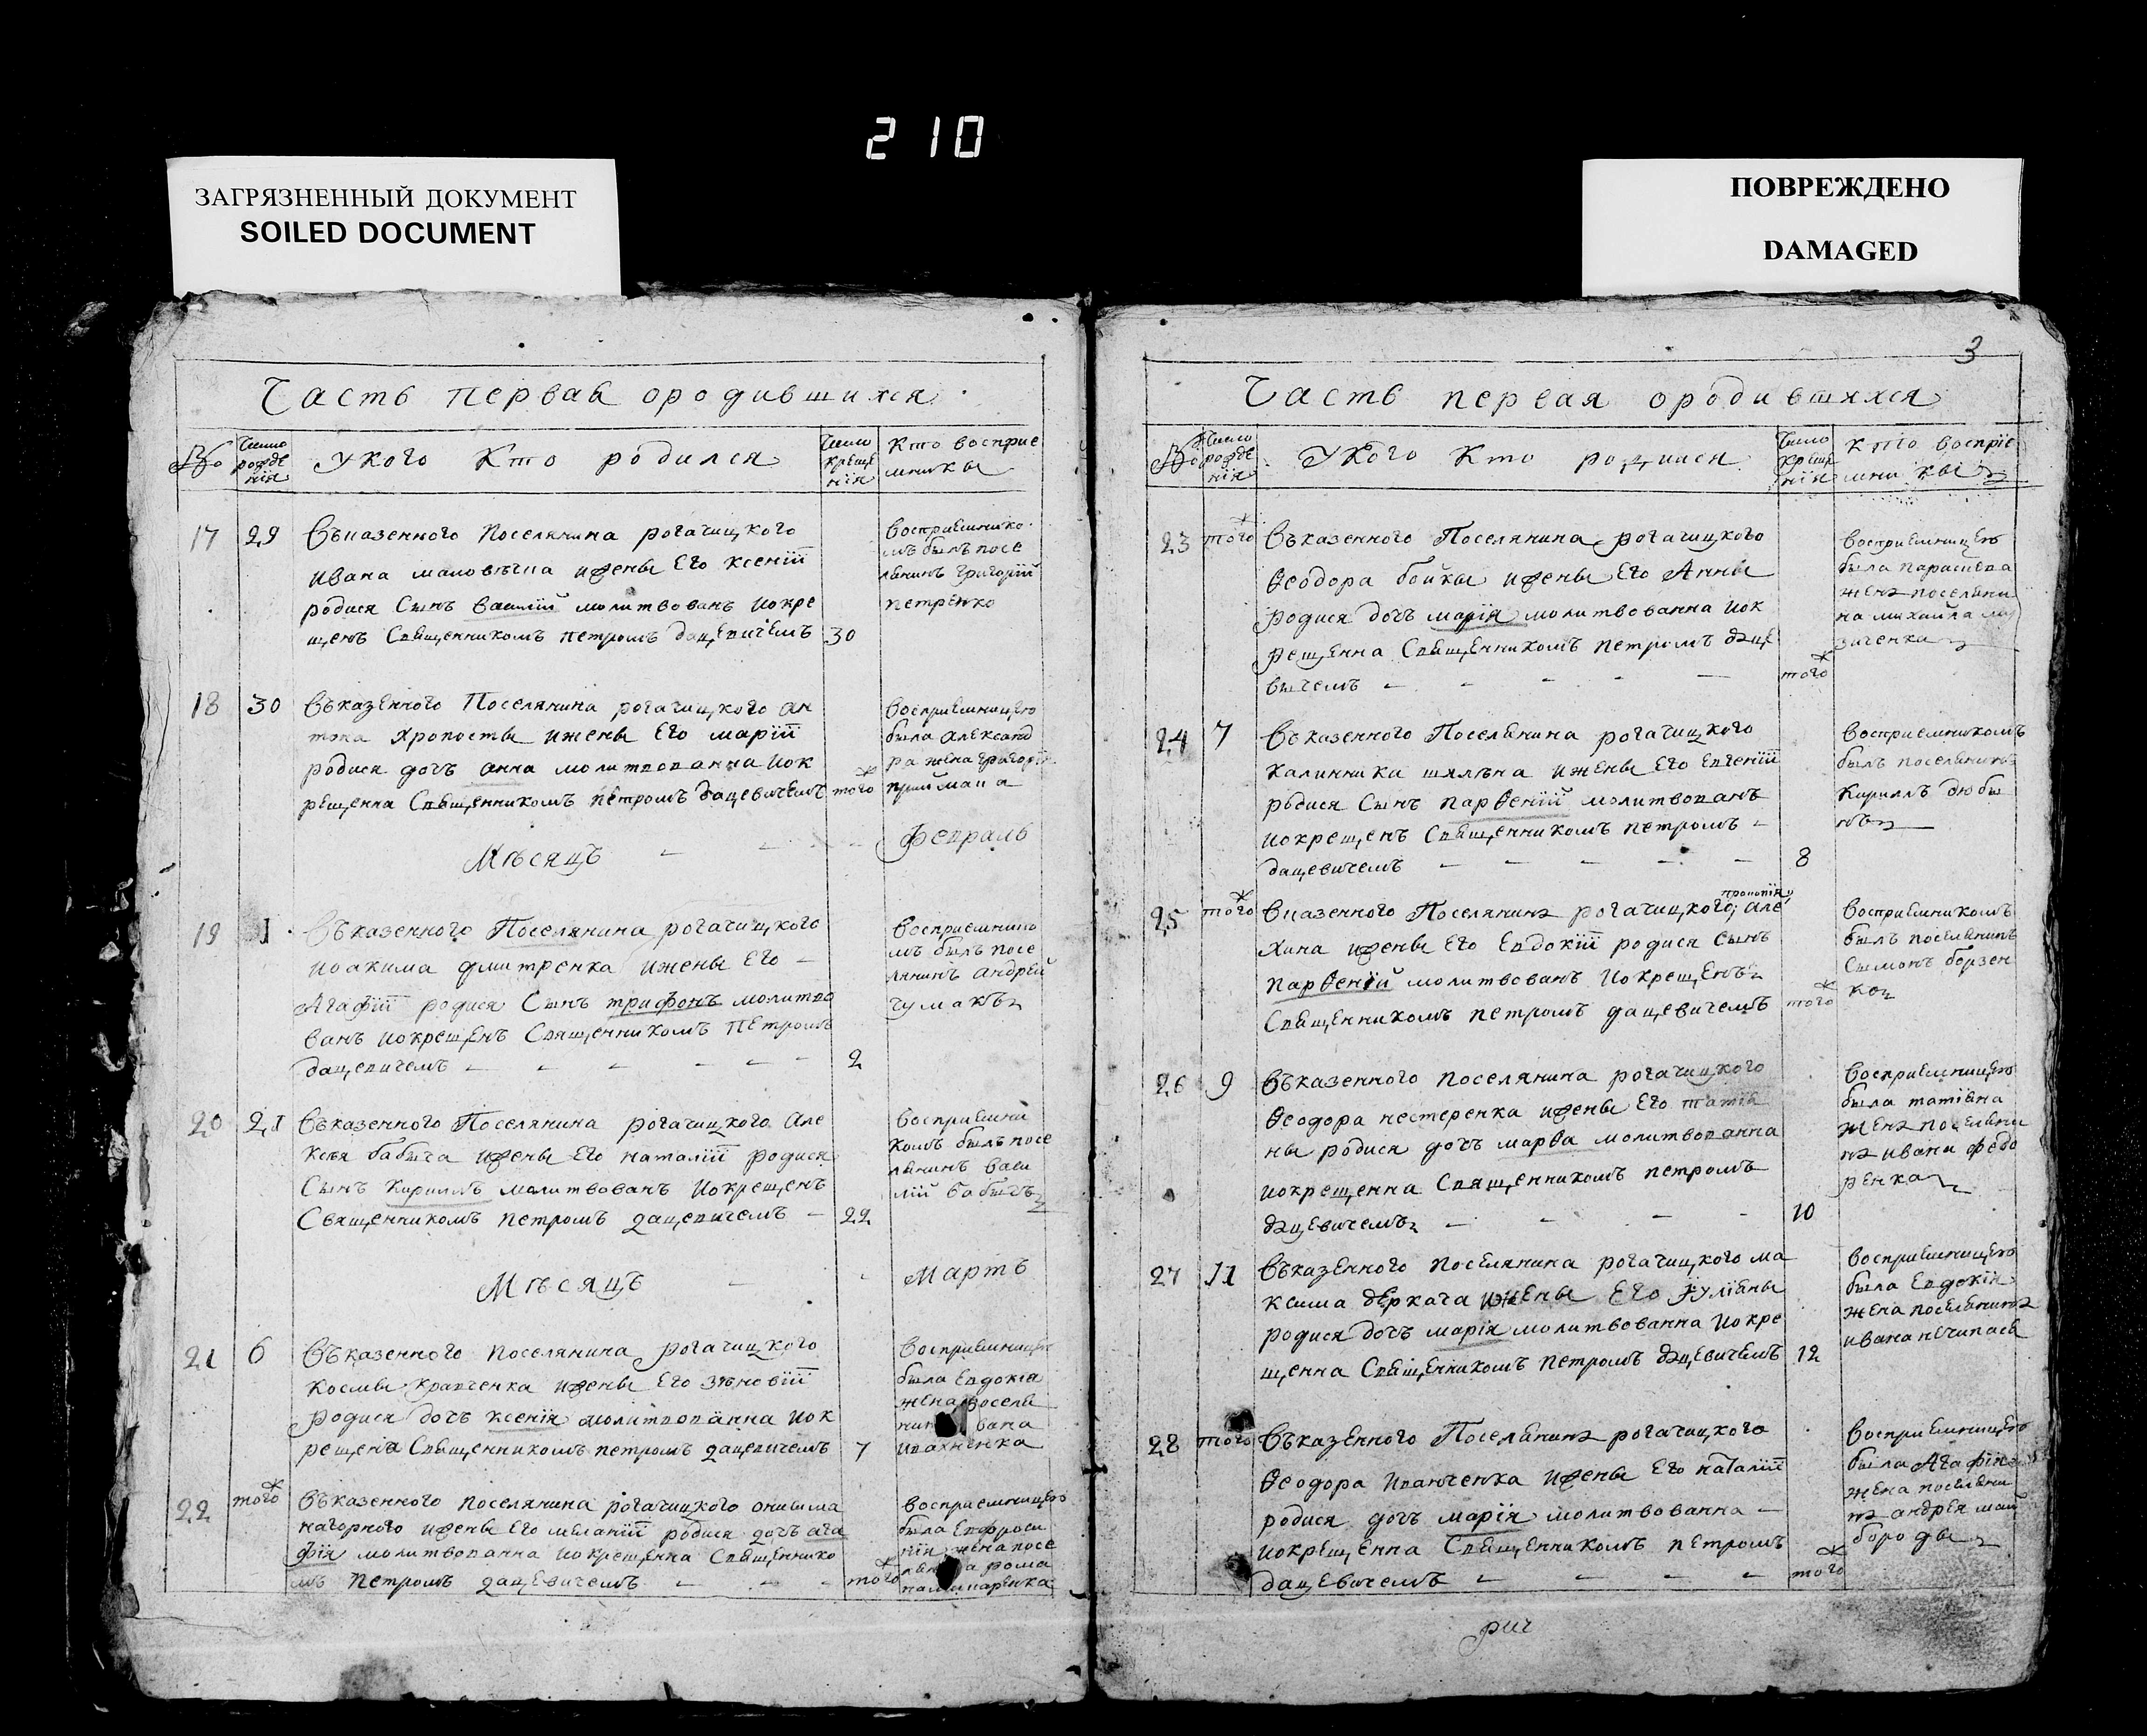 210
ЗАГРЯЗНЕННЫЙ ДОКУМЕНТ
SOILED DOCUMENT
ПОВРЕЖДЕНО
DAMAGED
Часть первая ородившихся
№ Число рожденія укого Кто родился Число крещенія Кто восприемникы
17 29 Въказенного Поселянина рогачицкого
Ивана маловѣчка ижены Его ксеніи
родися Сынъ василій молитвованъ Иокре
щенъ Священникомъ петромъ дацевичемъ 30
Восприемнико
мъ былъ посе
лянинъ григорій
петренко
18 30 Въказенного Поселянина рогачицкого ан
тона хропосты ижены Его маріи
родися дочь анна молитвованна Иок
рещенна Священникомъ петромъ дацевичемъ того
Восприемницею
была александ
ра жена григорія
приймака
Мѣсяцъ Февраль
19 1 Въказенного Поселянина рогачицкого
Иоакима дмитренка ижены Его
Агафіи родися Сынъ трифонъ молитво
ванъ Иокрещенъ Священникомъ Петромъ
дацевичемъ 2
Восприемнико
мъ былъ посе
лянинъ андрей
чумакъ
20 21 Въказенного Поселянина рогачицкого Але
ксѣя бабыча ижены Его наталіи родися
Сынъ Кириллъ молитвованъ Иокрещенъ
Священникомъ петромъ дацевичемъ 22
Восприемни
комъ былъ посе
лянинъ васи
лій бабычъ
Мѣсяцъ Мартъ
21 6 Въказенного поселянина рогачицкого
космы кравченка ижены Его зѣновіи
родися дочь ксенія молитвованна Иок
рещена Священникомъ петромъ дацевичемъ 7
Восприемницею
была Евдокіа
жена посели
нин вана
ивахненка
22 того Въказенного поселянина рогачицкого онисима
нагорного ижены Его меланіи родися дочь ага
фія молитвованна Иокрещенна Священнико
мъ Петромъ дацевичемъ того
Восприемницею
была Ефроси
нія жена посе
а рома
на
3
Часть первая ородившихся
№ Число рожденія Укого Кто родился Число крещенія Кто восприемникы
23 того Въказенного Поселянина рогачицкого
Ѳеодора бойкы ижены Его Анны
родися дочь марія молитвованна Иок
рещенна Священникомъ Петромъ даце
вычемъ того
Восприемницею
была параскева
жена поселяни
на михайла ла
зиченка
24 7 Въказенного Поселянина рогачицкого
калинника ижены Его Евгеніи
родися Сынъ парѲеній молитвованъ
иокрещенъ Священникомъ петромъ
дацевичемъ 8
Восприемникомъ
былъ поселянинъ
Кириллъ дюбы
25 того Вказенного Поселянина рогачицкого прокопія але
хина ижены Его Евдокіи родися сынъ
парѲеній молитвованъ Иокрещенъ
Священникомъ петромъ дацевичемъ того
Восприемникомъ
былъ поселянинъ
Сымонъ борзен
ко
26 9 Въказенного поселянина рогачицкого
Ѳеодора нестеренка ижены Его татія
ны родися дочь марѲа молитвованна
иокрещенна Священникомъ петромъ
дацевичемъ 10
Восприемницею
была татіяна
жена поселяни
на ивана федо
ренка
27 11 Въказенного поселянина рогачицкого ма
ксима деркача ижены Его Іуліаны
родися дочь марія молитвованна Иокре
щенна Священникомъ петромъ дацевичемъ 12
Восприемницею
была Евдокія
жена поселянина
ивана нечипаса
28 того Въказенного Поселянина рогачицкого
Ѳеодора иванченка ижены Его наталіи
родися дочь марія молитвованна
иокрещенна Священникомъ петромъ
дацевичемъ того
Восприемницею
была Агафія
жена поселяни
на андрея май
бороды